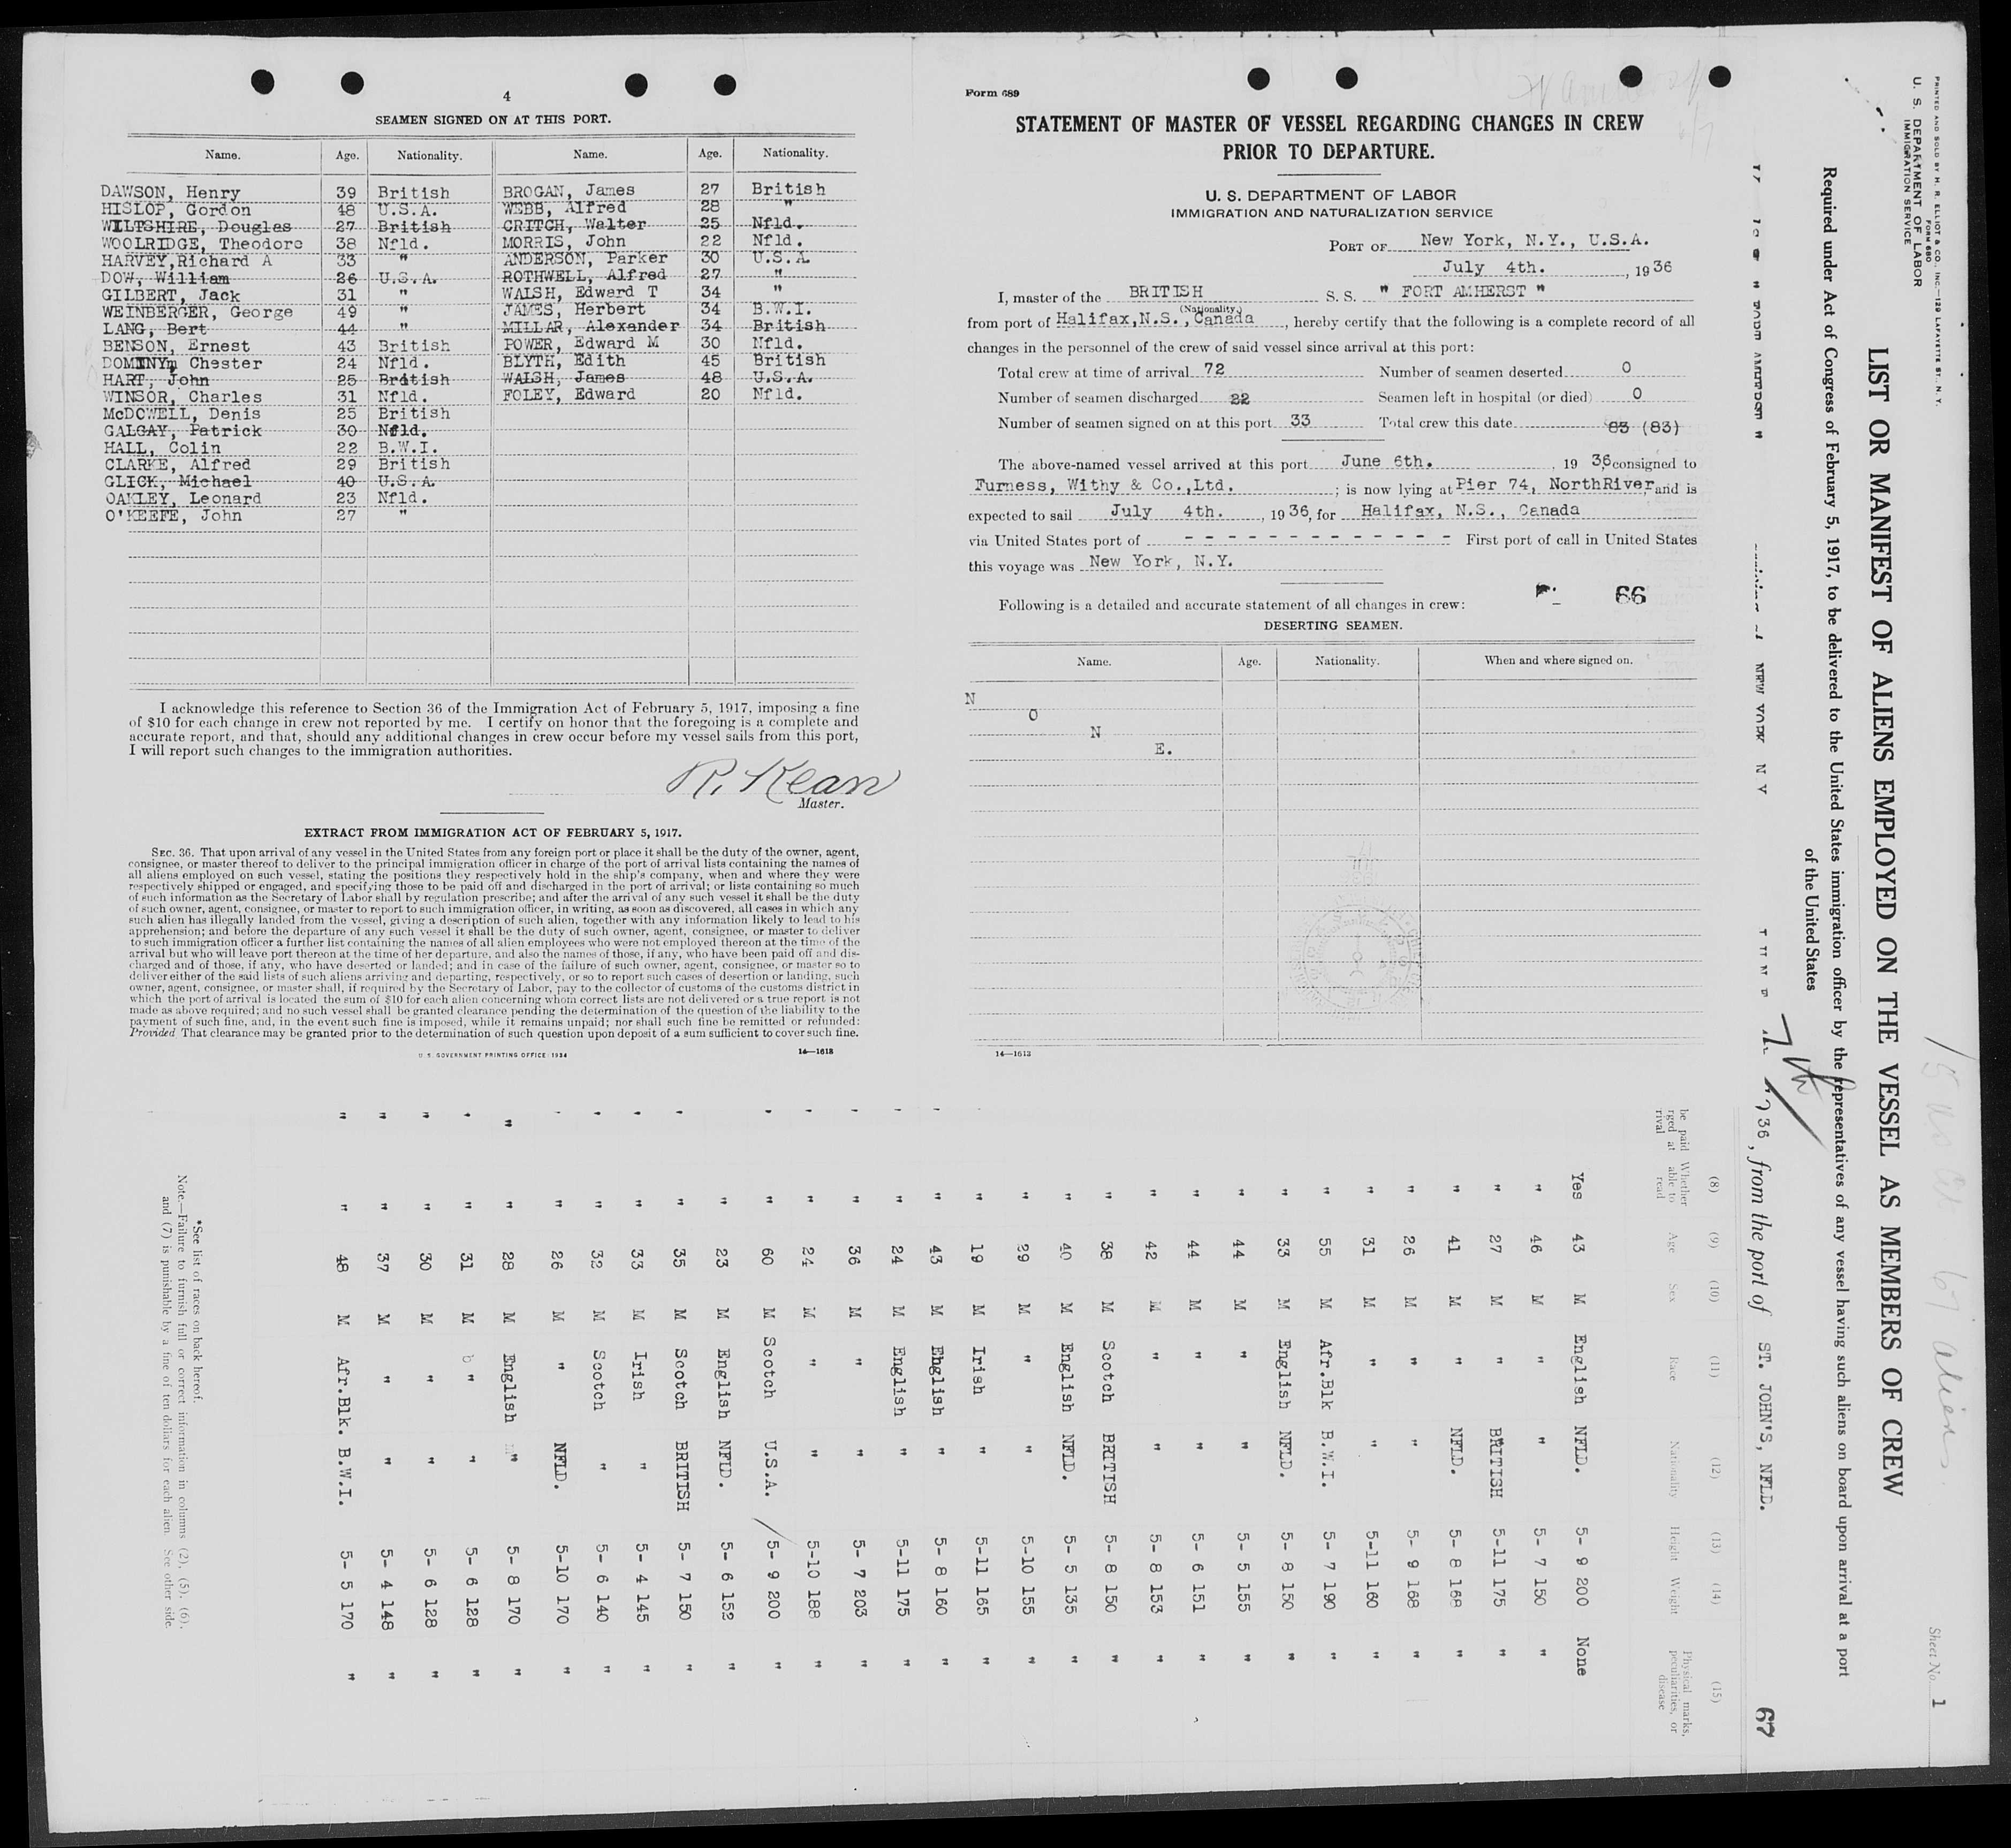 4
SEAMEN SIGNED ON AT THIS PORT.
Name. Age. Nationality. Name. Age. Nationality.
DAWSON, Henry 39 British BROGAN, James 27 British
HISLOP, Gordon 48 U.S.A. WEBB, Alfred 28 "
WILTSHIRE, Douglas 27 British CRITCH, Walter 25 Nfld.
WOOLRIDGE, Theodore 38 Nfld. MORRIS, John 22 Nfld.
HARVEY,Richard A 33 " ANDERSON, Parker 30 U.S.A.
DOW, William 26 U.S.A. ROTHWELL, Alfred 27 "
GILBERT, Jack 31 " WALSH, Edward T 34 "
WEINBERGER, George 49 " JAMES, Herbert 34 B.W.I.
LANG, Bert 44 " MILLAR, Alexander 34 British
BENSON, Ernest 43 British POWER, Edward M 30 Nfld.
DOMINY, Chester 24 Nfld. BLYTH, Edith 45 British
HART, John 25 British WALSH, James 48 U.S.A.
WINSOR, Charles 31 Nfld. FOLEY, Edward 20 Nfld.
McDOWELL, Denis 25 British
GALGAY, Patrick 30 Nfld.
HALL, Colin 22 B.W.I.
CLARKE, Alfred 29 British
GLICK, Michael 40 U.S.A.
OAKLEY, Leonard 23 Nfld.
O'KEEFE, John 27 "
I acknowledge this reference to Section 36 of the Immigration Act of February 5, 1917, imposing a fine
of $10 for each change in crew not reported by me. I certify on honor that the foregoing is a complete and
accurate report, and that, should any additional changes in crew occur before my vessel sails from this port,
I will report such changes to the immigration authorities.
R. Kean
Master.
EXTRACT FROM IMMIGRATION ACT OF FEBRUARY 5, 1917.
SEC. 36. That upon arrival of any vessel in the United States from any foreign port or place it shall be the duty of the owner, agent,
consignee, or master thereof to deliver to the principal immigration officer in charge of the port of arrival lists containing the names of
all aliens employed on such vessel, stating the positions they respectively hold in the ship's company, when and where they were
respectively shipped or engaged, and specifying those to be paid off and discharged in the port of arrival; or lists containing so much
of such information as the Secretary of Labor shall by regulation prescribe; and after the arrival of any such vessel it shall be the duty
of such owner, agent, consignee, or master to report to such immigration officer, in writing, as soon as discovered, all cases in which any
such alien has illegally landed from the vessel, giving a description of such alien, together with any information likely to lead to his
apprehension; and before the departure of any such vessel it shall be the duty of such owner, agent, consignee, or master to deliver
to such immigration officer a further list containing the names of all alien employees who were not employed thereon at the time of the
arrival but who will leave port thereon at the time of her departure, and also the names of those, if any, who have been paid off and dis-
charged and of those, if any, who have deserted or landed; and in case of the failure of such owner, agent, consignee, or master so to
deliver either of the said lists of such aliens arriving and departing, respectively, or so to report such cases of desertion or landing, such
owner, agent, consignee, or master shall, if required by the Secretary of Labor, pay to the collector of customs of the customs district in
which the port of arrival is located the sum of $10 for each alien concerning whom correct lists are not delivered or a true report is not
made as above required; and no such vessel shall be granted clearance pending the determination of the question of the liability to the
payment of such fine, and, in the event such fine is imposed, while it remains unpaid; nor shall such fine be remitted or refunded:
Provided That clearance may be granted prior to the determination of such question upon deposit of a sum sufficient to cover such fine.
U. S. GOVERNMENT PRINTING OFFICE: 1934 14—1613
Form 689
STATEMENT OF MASTER OF VESSEL REGARDING CHANGES IN CREW
PRIOR TO DEPARTURE.
U. S. DEPARTMENT OF LABOR
IMMIGRATION AND NATURALIZATION SERVICE
PORT OF New York, N.Y., U.S.A.
July 4th. , 1936
I, master of the BRITISH S. S. " FORT AMHERST "
(Nationality)
from port of Halifax,N.S.,Canada , hereby certify that the following is a complete record of all
changes in the personnel of the crew of said vessel since arrival at this port:
Total crew at time of arrival 72 Number of seamen deserted 0
Number of seamen discharged 22 Seamen left in hospital (or died) 0
Number of seamen signed on at this port 33 Total crew this date 83 (83)
The above-named vessel arrived at this port June 6th. , 1936 consigned to
Furness, Withy & Co.,Ltd. ; is now lying at Pier 74, NorthRiver and is
expected to sail July 4th. , 1936, for Halifax, N.S., Canada
via United States port of - - - - - - - - - - - - - First port of call in United States
this voyage was New York, N.Y.
66
Following is a detailed and accurate statement of all changes in crew:
DESERTING SEAMEN.
Name. Age. Nationality. When and where signed on.
N
O
N
E.
14—1613
PRINTED AND SOLD BY H. R. ELLIOT & CO., INC.—129 LAFAYETTE ST., N. Y.
FORM 680
U. S. DEPARTMENT OF LABOR
IMMIGRATION SERVICE
Sheet No. 1
LIST OR MANIFEST OF ALIENS EMPLOYED ON THE VESSEL AS MEMBERS OF CREW
Required under Act of Congress of February 5, 1917, to be delivered to the United States immigration officer by the representatives of any vessel having such aliens on board upon arrival at a port
of the United States
" FORT AMHERST " NEW YORK N Y JUNE 7th 1936, from the port of ST. JOHN'S, NFLD. 67
(8) (9) (10) (11) (12) (13) (14) (15)
Whether able to read Age Sex Race Nationality Height Weight Physical marks, peculiarities, or disease
Yes 43 M English NFLD. 5- 9 200 None
" 46 M " " 5- 7 150 "
" 27 M " BRITISH 5-11 175 "
" 41 M " NFLD. 5- 8 168 "
" 26 M " " 5- 9 168 "
" 31 M " " 5-11 160 "
" 55 M Afr.Blk B.W.I. 5- 7 190 "
" 33 M English NFLD. 5- 8 150 "
" 44 M " " 5- 5 155 "
" 44 M " " 5- 6 151 "
" 42 M " " 5- 8 153 "
" 38 M Scotch BRITISH 5- 8 150 "
" 40 M English NFLD. 5- 5 135 "
" 29 M " " 5-10 155 "
" 19 M Irish " 5-11 165 "
" 43 M English " 5- 8 160 "
" 24 M English " 5-11 175 "
" 36 M " " 5- 7 203 "
" 24 M " " 5-10 188 "
" 60 M Scotch U.S.A. 5- 9 200 "
" 23 M English NFLD. 5- 6 152 "
" 35 M Scotch BRITISH 5- 7 150 "
" 33 M Irish " 5- 4 145 "
" 32 M Scotch " 5- 6 140 "
" 26 M " NFLD. 5-10 170 "
" 28 M English " 5- 8 170 "
" 31 M " " 5- 6 128 "
" 30 M " " 5- 6 128 "
" 37 M " " 5- 4 148 "
" 48 M Afr.Blk. B.W.I. 5- 5 170 "
*See list of races on back hereof.
Note.—Failure to furnish full or correct information in columns (2), (5), (6),
and (7) is punishable by a fine of ten dollars for each alien. See other side.